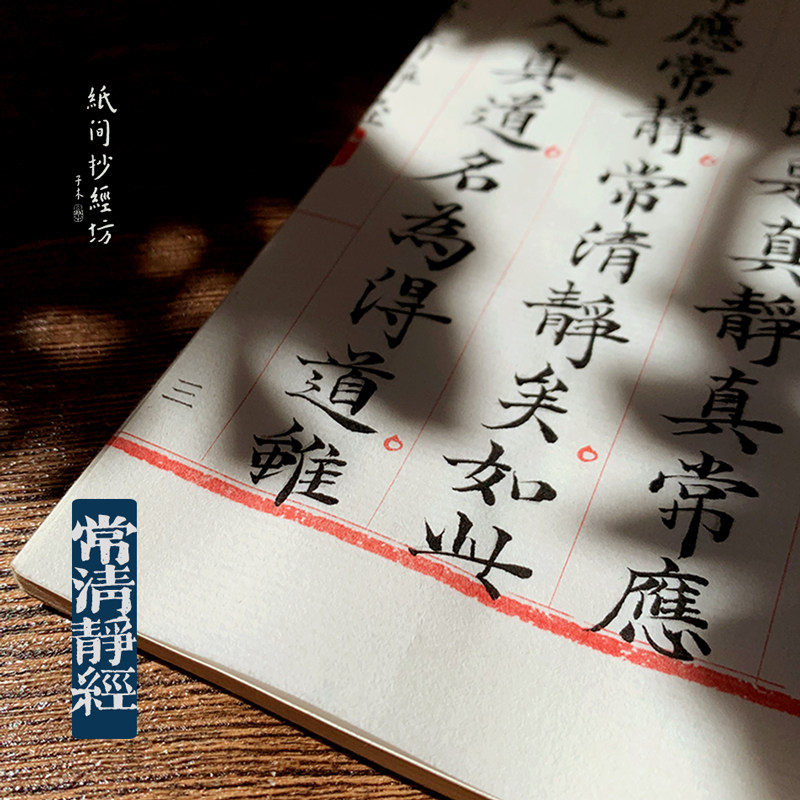 紙间抄經坊
子木
是真靜真常應
常應常靜常清靜矣如此
既入真道名為得道雖
三
常清靜經